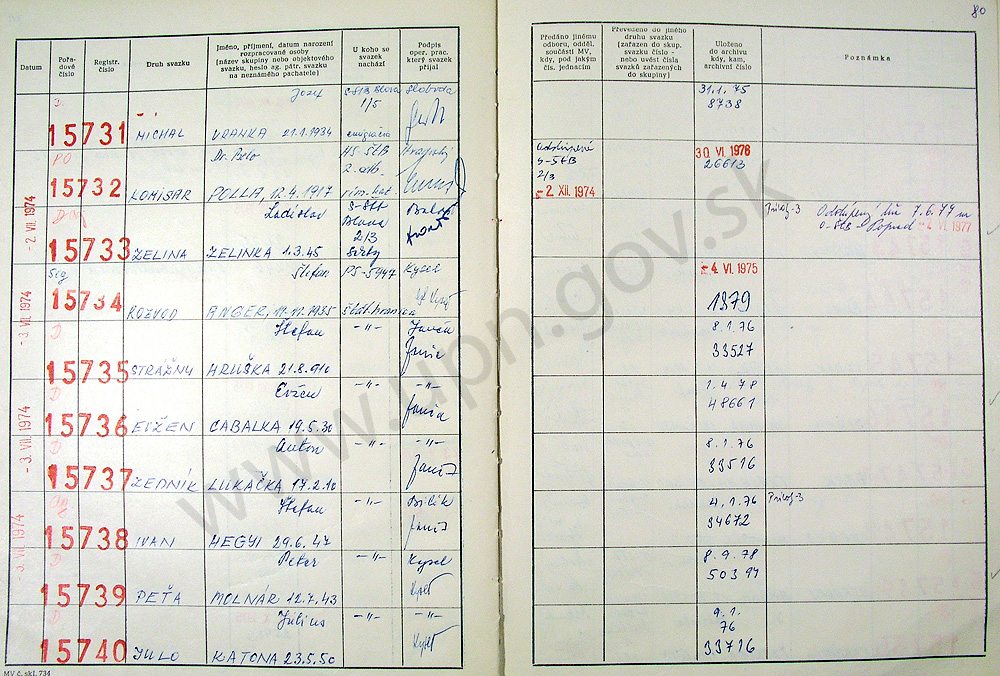 80
Datum
Pořadové číslo
Registr. číslo
Druh svazku
Jméno, příjmení, datum narození
rozpracované osoby
(název skupiny nebo objektového
svazku, heslo ag. pátr. svazku
na neznámého pachatele)
U koho se
svazek
nachází
Podpis
oper. prac.
který svazek
přijal
Předáno jinému
odboru, odděl.
součásti MV,
kdy, pod jakým
čís. jednacím
Převedeno do jiného
druhu svazku
(zařazen do skup.
svazku číslo -
nebo uvést čísla
svazků zařazených
do skupiny)
Uloženo
do archivu
kdy, kam,
archivní číslo
Poznámka
Jozef
Sloboda
31.1.75
1/5
8738
15731 MICHAL VRANKA 21.1.1934 emigrácia
PO
Dr. Belo
30. VI. 1976
2. odb.
26613
2/3
15732 KOMISAR POLLA, 12.4.1917
- 2. XII. 1974
- 2. VII. 1974
Ladislav
2/3
Odstúpený dňa 7.6.77 na
O-ŠtB - Poprad - 4. VI. 1977
15733 ZELINA ZELINKA 1.3.45
Štefan PS-5947 Kysel
- 4. VI. 1975
15734 ROZVOD ANGER, 11.11.1935 Štát. hranica
1379
- 3. VII. 1974
D
Štefan -"-
8.1.76
33527
15735 STRÁŽNY HRUŠKA 21.8.910
D
Evžen -"- -"-
1.4.78
48661
15736 EVŽEN CABALKA 19.5.30
- 3. VII. 1974
D
Anton -"- -"-
8.1.76
33516
15737 ZEDNÍK LUKAČKA 17.2.10
Štefan -"- Bilčík
4.1.76
34672
15738 IVAN HEGYI 29.6.47
- 3. VII. 1974
D
Peter -"- Kysel
8.9.78
50394
15739 PEŤA MOLNÁR 12.7.43
D
Július -"-
9.1.
76
15740 JULO KATONA 23.5.50
33716
MV č. skl. 734
www.upn.gov.sk